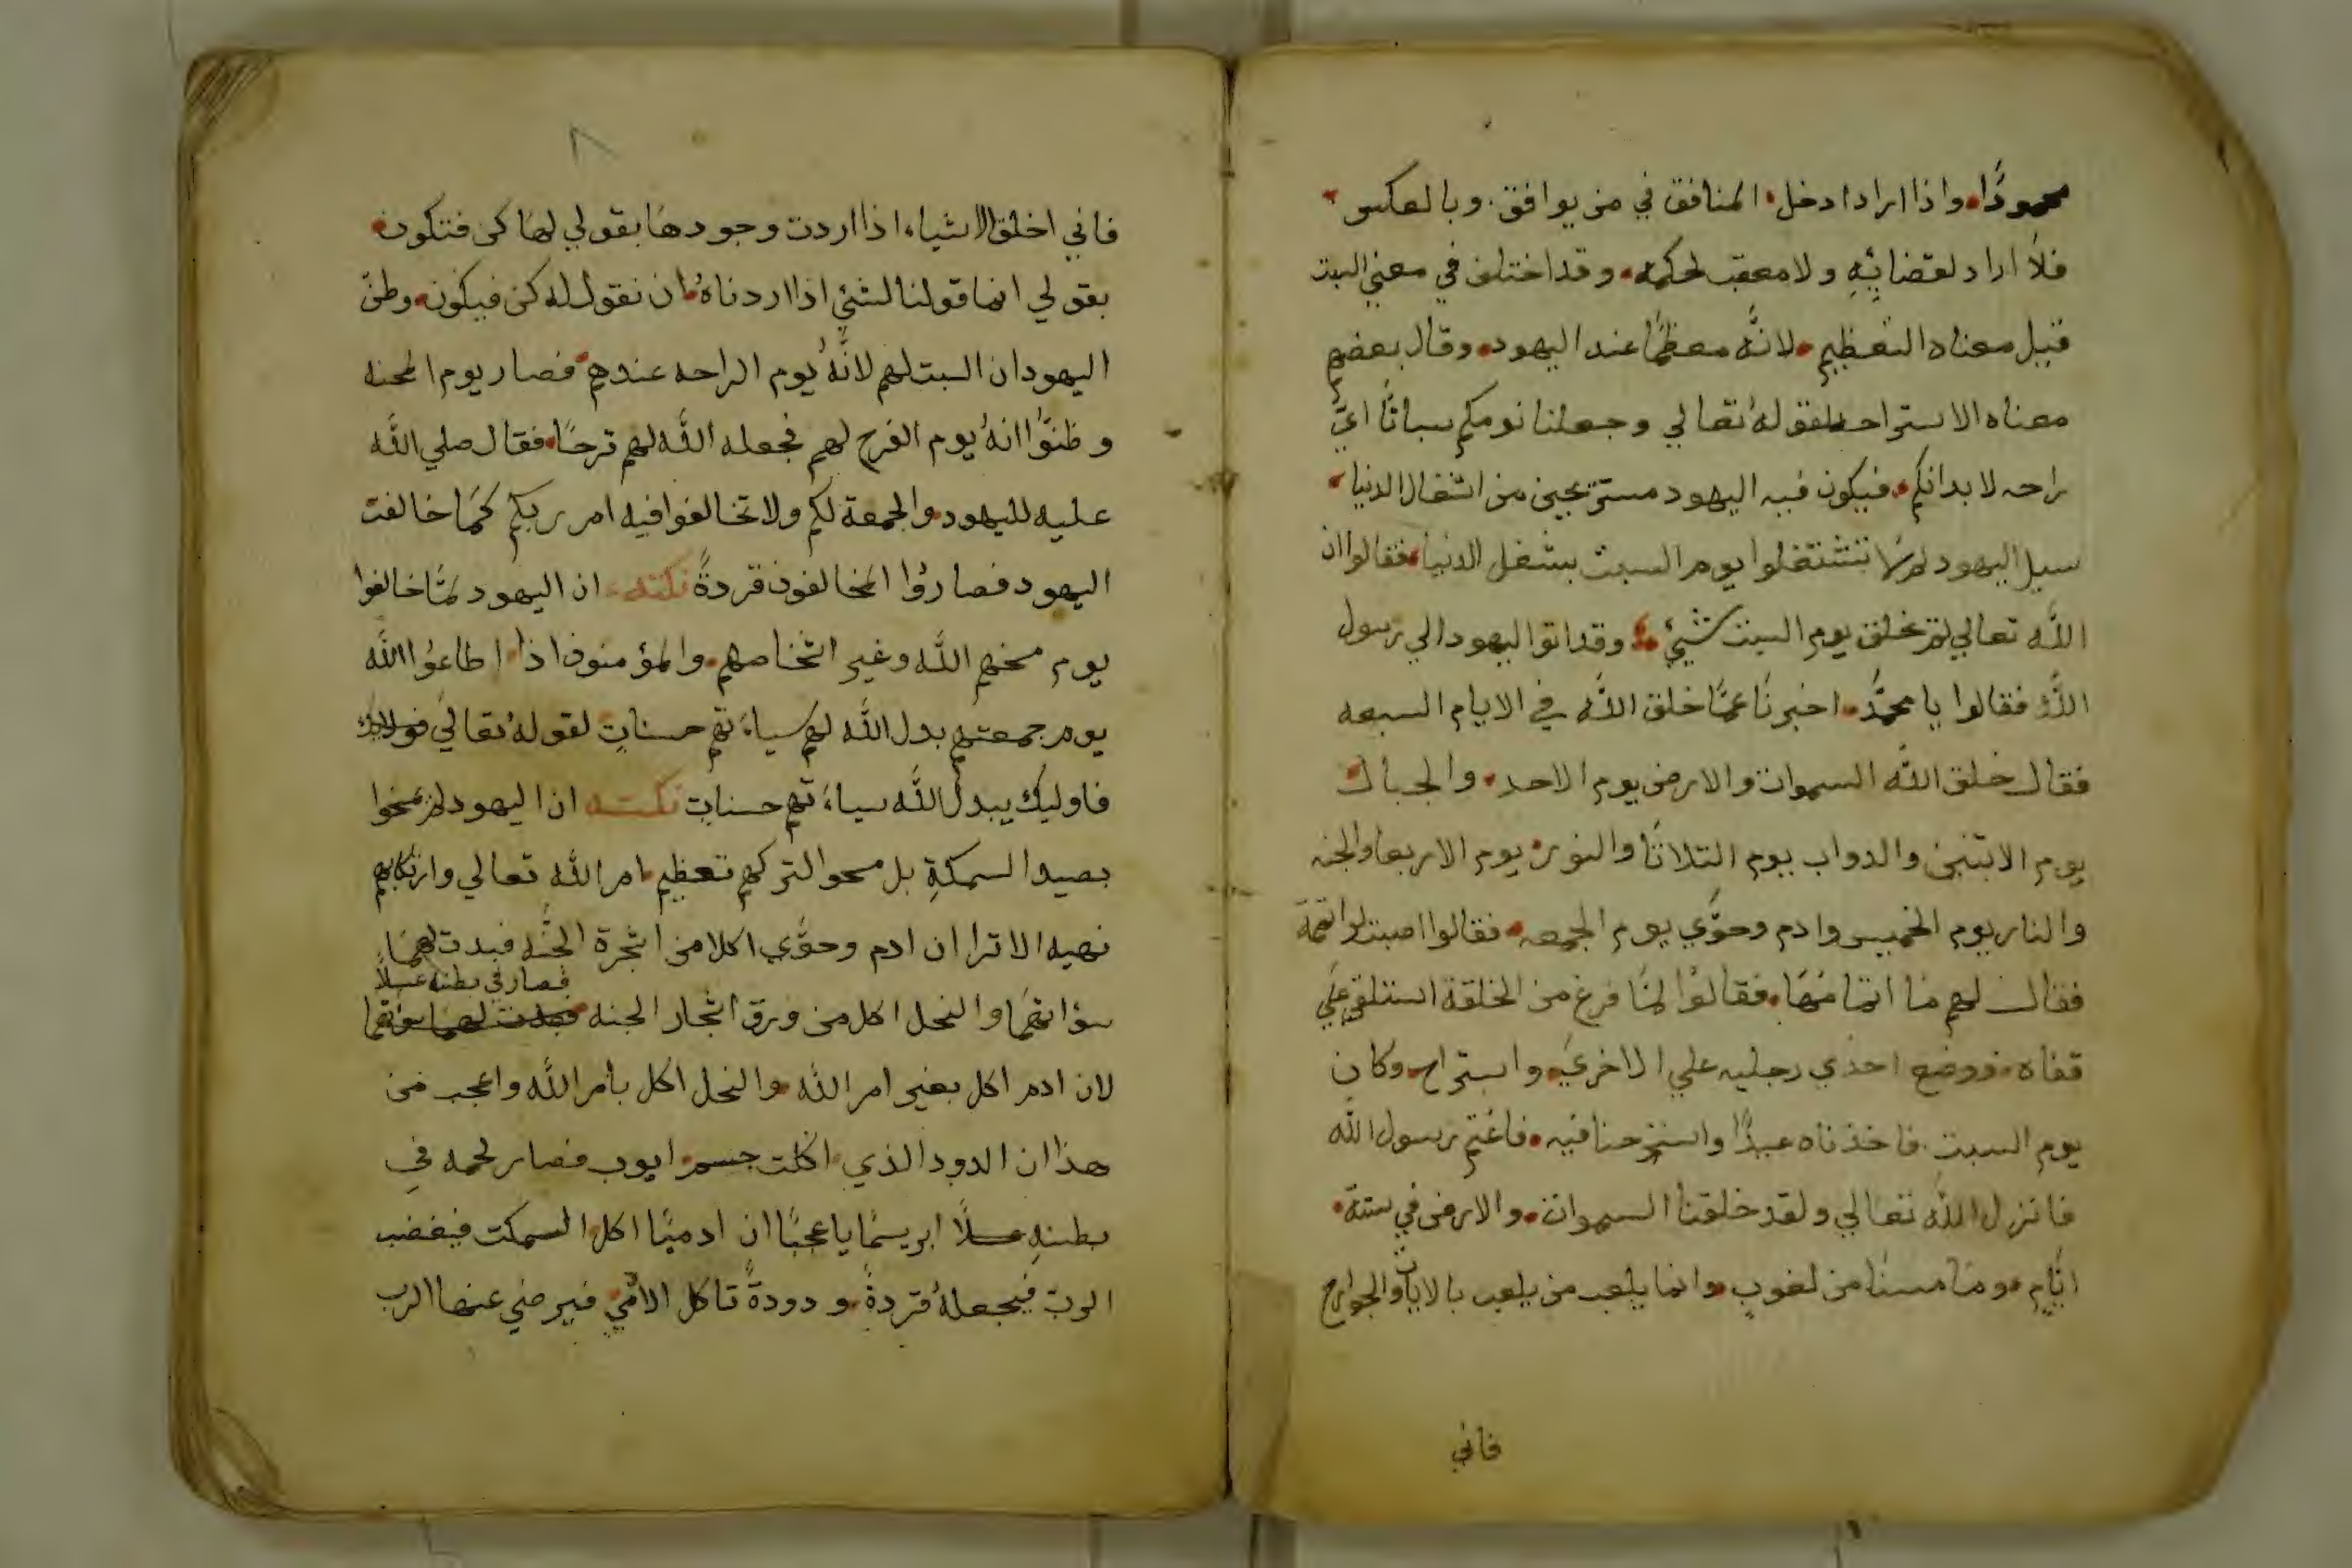 محمودًا. واذا اراد ادخل المنافق في من يوافق. وبالعكس
فلا اراد لقضائِهِ ولا معقب لحكمه. وقد اختلف في معني السبت
قيل معناه التعظيم. لانَّه معظمًا عند اليهود. وقال بعضهم
معناه الاستراحه لقولهُ تعالي وجعلنا نومكم سباتًا ايّ
راحه لابدانكم. فيكون فيه اليهود مستريحين من اشغال الدنيا.
سيل اليهود لم لا تنشتغلوا يوم السبت بشغل الدنيا. فقالوا ان
اللَّه تعالي لم يخلق يوم السبت شيئ. وقد اتوا اليهود الي رسول
اللَّه فقالوا يا محمَّد. اخبرنَا عمَّا خلق اللَّه في الايام السبعه
فقال خلق اللَّه السموات والارض يوم الاحد. والجبال
يوم الاتنين والدواب يوم التلاتَا والنور. يوم الاربعا والجنه
والنار يوم الخميس وادم وحوَّي يوم الجمعه. فقالوا اصبت لو اتممة
فقال لهم مَا اتمامُهَا. فقالوُا لمَّا فرغ من الخلقة استلقي علَي
قفاه. ووضع احدَي رجليه علي الاخريَ. واستراح. وكان
يوم السبت. فاخذناه عيدًا واستزحنا فيه. فاغتم رسول اللَّه
فانزل اللَّه تعالي ولقد خلقنا السموات. والارض في ستة.
ايَّامٍ. ومَا مسنا من لغوبٍ. وانما يلعب من يلعب بالايات والجوارح
فاني
٨
فاني اخلق الاشياء اذا اردت وجودهَا بقولي لهَا كن فتكون.
بقولي انما قولنا لشئيٍ اذا اردناهُ. ان نقول له كن فيكون. وظنّ
اليهود ان السبت لهم لانَّهُ يوم الراحه عندهم. فصار يوم المحنه
وظنوَّا انهُ يوم الفرح لهم فجعله اللَّه لهم ترحًا. فقال صلي اللَّه
عليه لليهود. والجمعة لكم ولا تخالفوا فيه امر ربكم كمَا خالفت
اليهود فصاروُا المخالفون قردةً نكته. ان اليهود لمَّا خالفوا
يوم مسخهم اللَّه وغير اشخاصهم. والمؤمنون اذا اطاعوُا اللَّه
يوم جمعتهم بدل اللَّه لهم سياءَتهم حسناتٍ لقولهُ تعاليَ فولايك
فاوليك يبدلُ اللَّه سياءَتهم حسناتٍ نكته ان اليهود لم يمسخوا
بصيد السمكةِ بل مسحوا لتركهم تعظيم. امر اللَّه تعالي وارتكابهم
نهيه الا ترا ان ادم وحوَّي اكلا من اشجرة الجنَّه فبدت لهمَا
فصار في بطنه عسلًا
سوُاتهمَا والنحل اكل من ورق اشجار الجنه فبدت لهما سوَاتهما
لان ادم اكل بغير امر اللَّه. والنحل اكل بامر اللَّه واعجب من
هذا ان الدود الذي. اكلت جسم. ايوب فصار لحمه في
بطنهِ عسلًا ابريسمًا يا عجبًا ان ادميًا اكل السمكت فيغضب
الربّ فيجعلهُ قردةً. ودودةً تاكل الامّيٍ. فيرضي عنها الرب